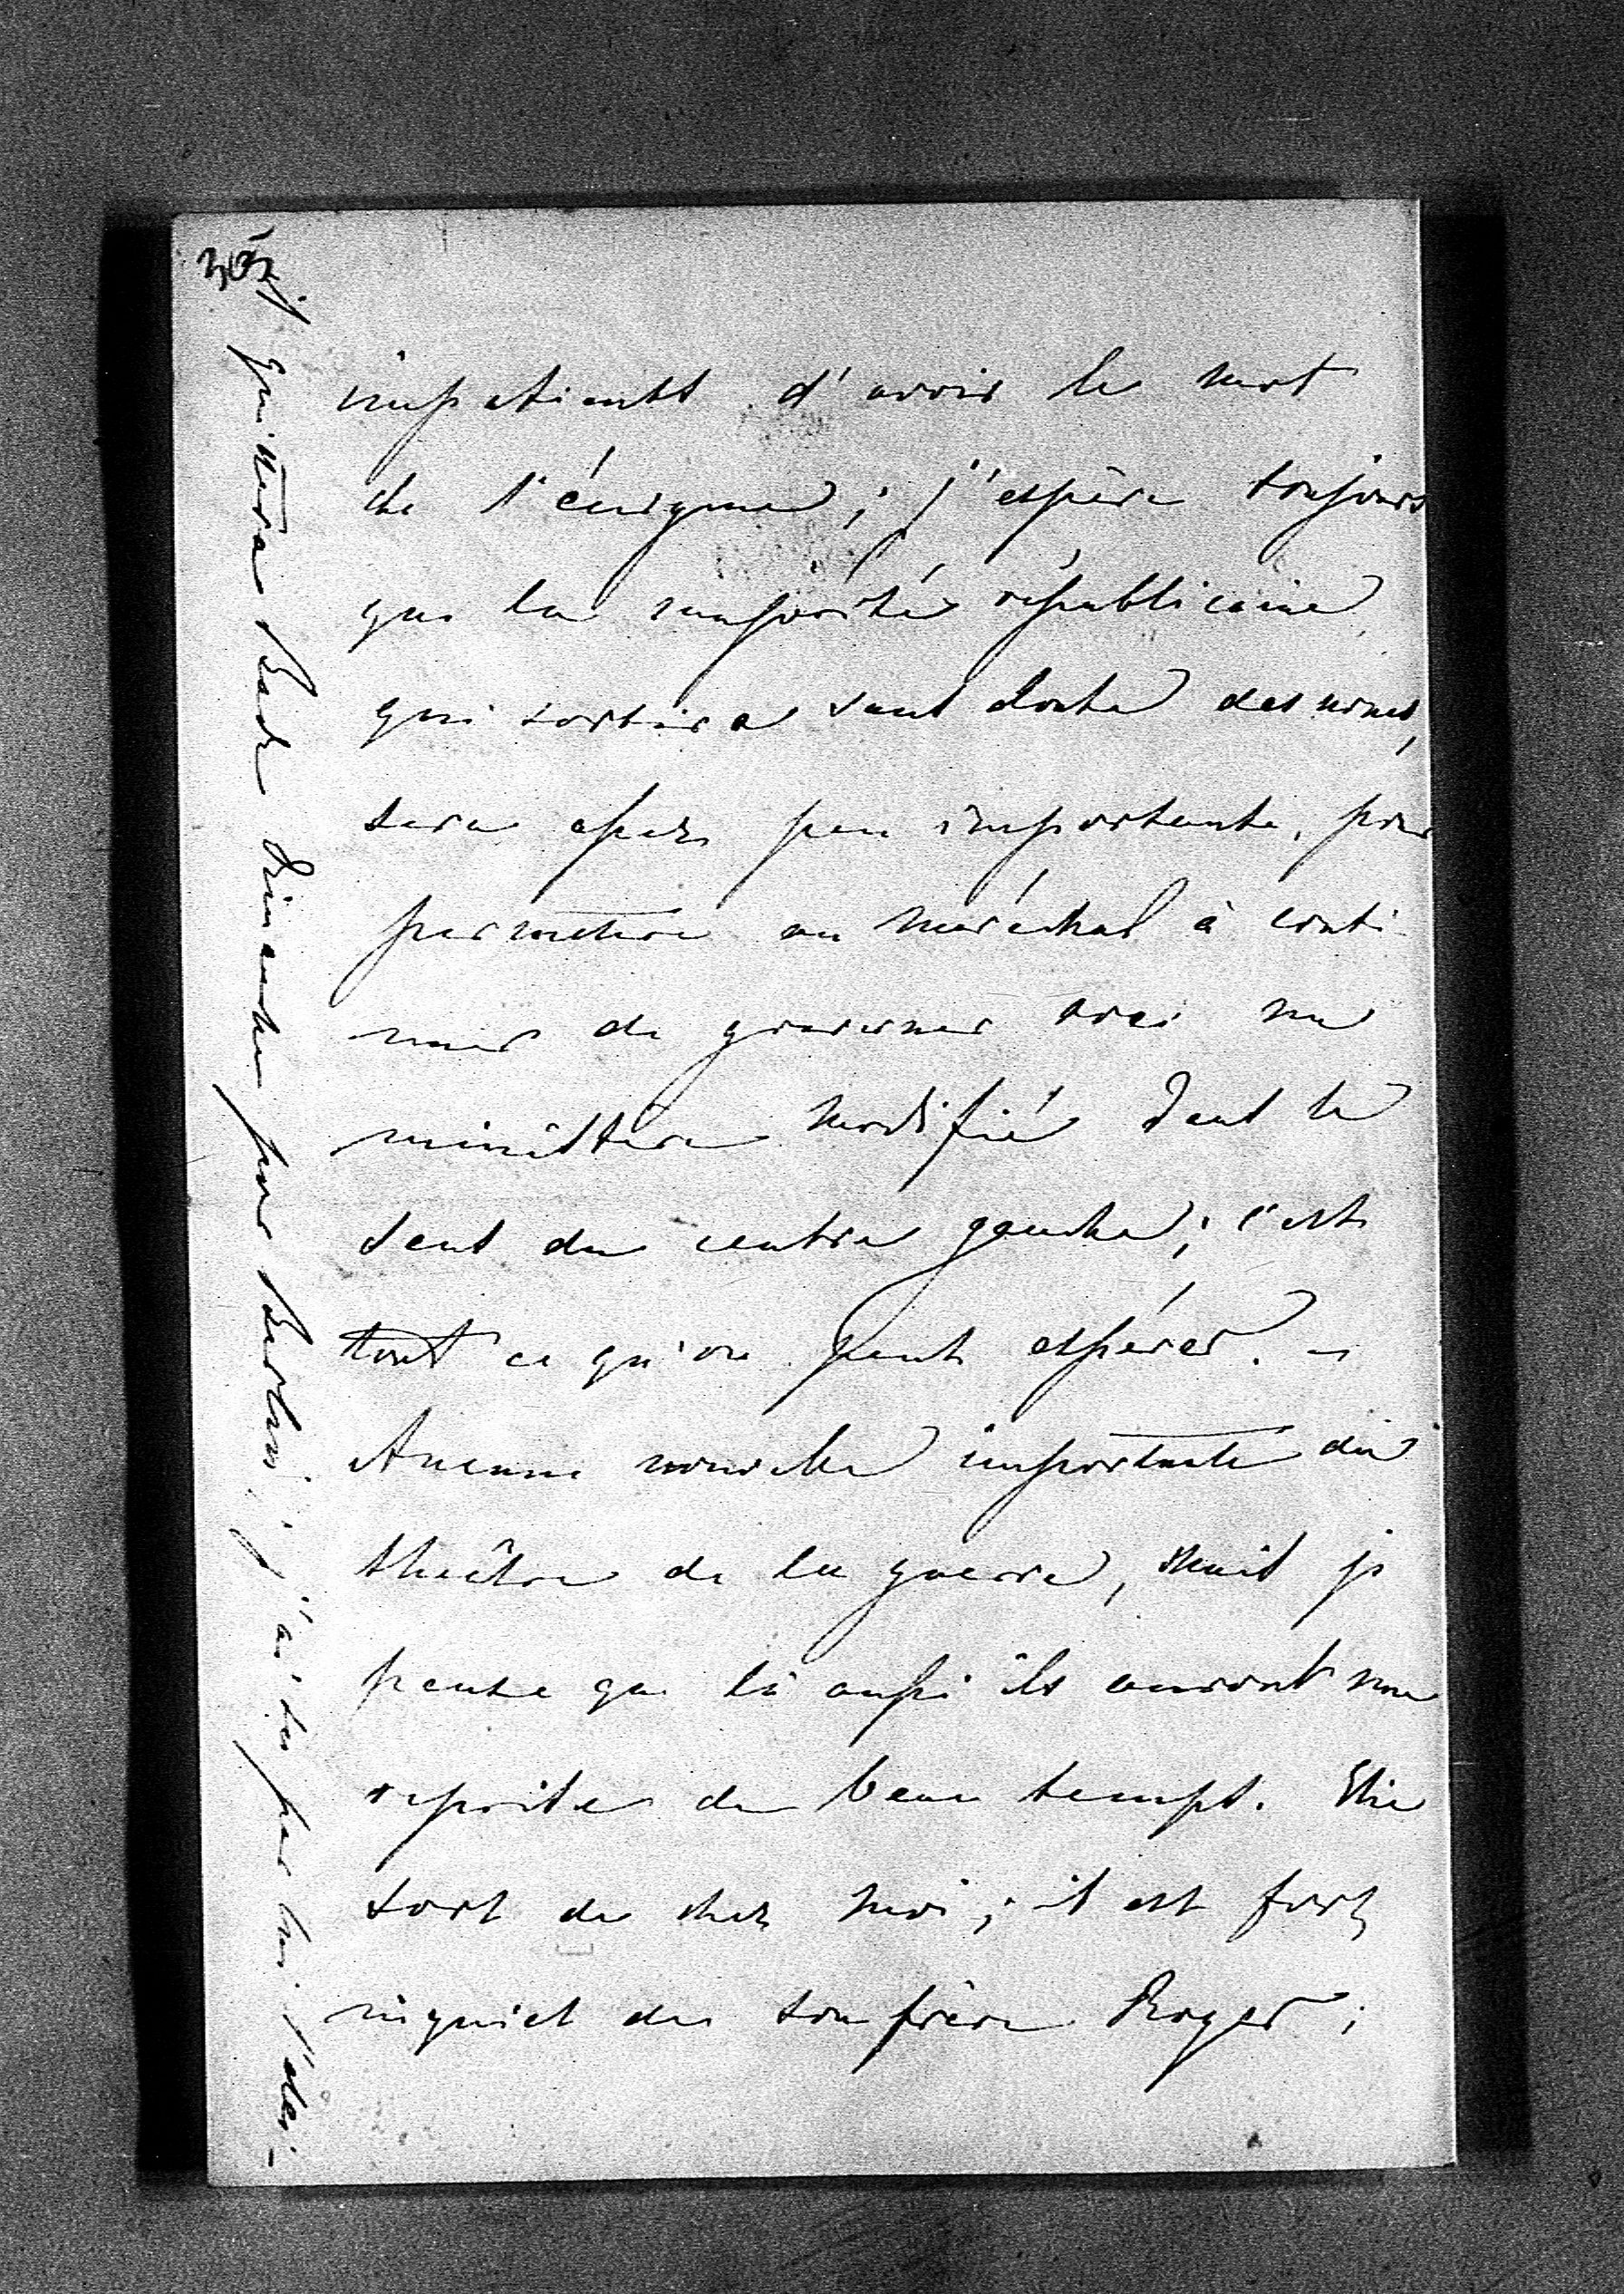 impatients d'avoir le mot
de l'énigme; j'espère toujours
que la majorité républicaine,
qui sortira sans doute des urnes,
sera assez peu importante, pour
permettre au maréchal à conti-
nuer de gouverner avec un
ministère modifié dans le
sens du centre gauche; c'est
tout ce qu'on peut espérer. –
Aucune nouvelle importante du
théâtre de la guerre, mais je
pense que là aussi ils auront une
reprise de beau temps. Elie
sort de chez moi; il est fort
inquiet de son frère Roger;
quittera Bade Dimanche pour Berlin; j'ai su par lui l'ader-